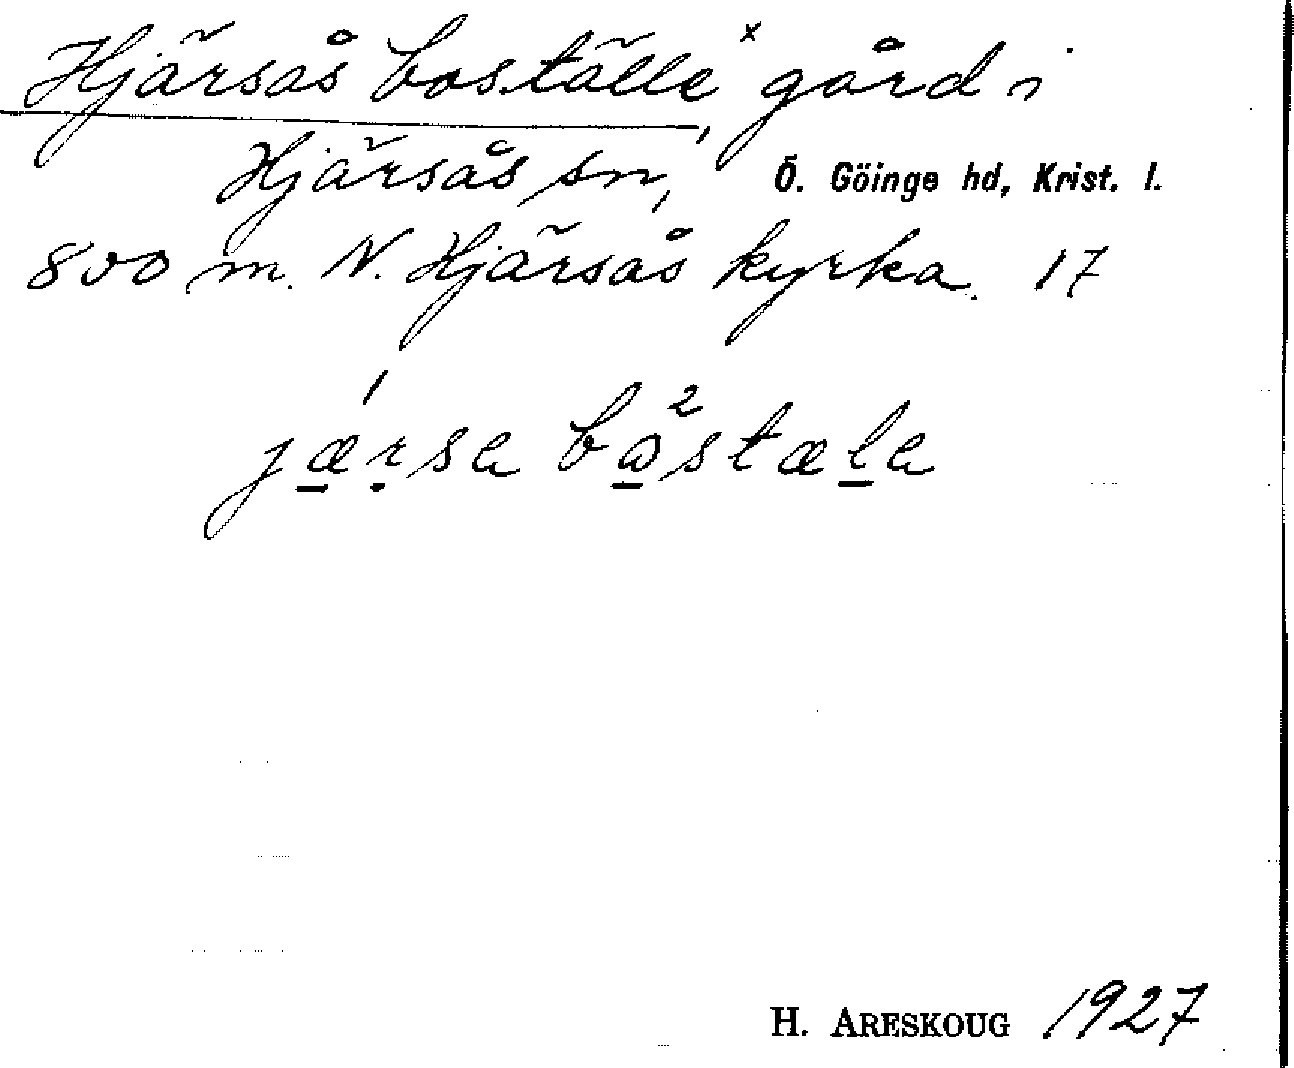 Hjärsås boställe,ˣ gård i
Hjärsås sn, Ö. Göinge hd, Krist. l.
800 m. N. Hjärsås kyrka. 17
jærsa bostæla
H. ARESKOUG 1927